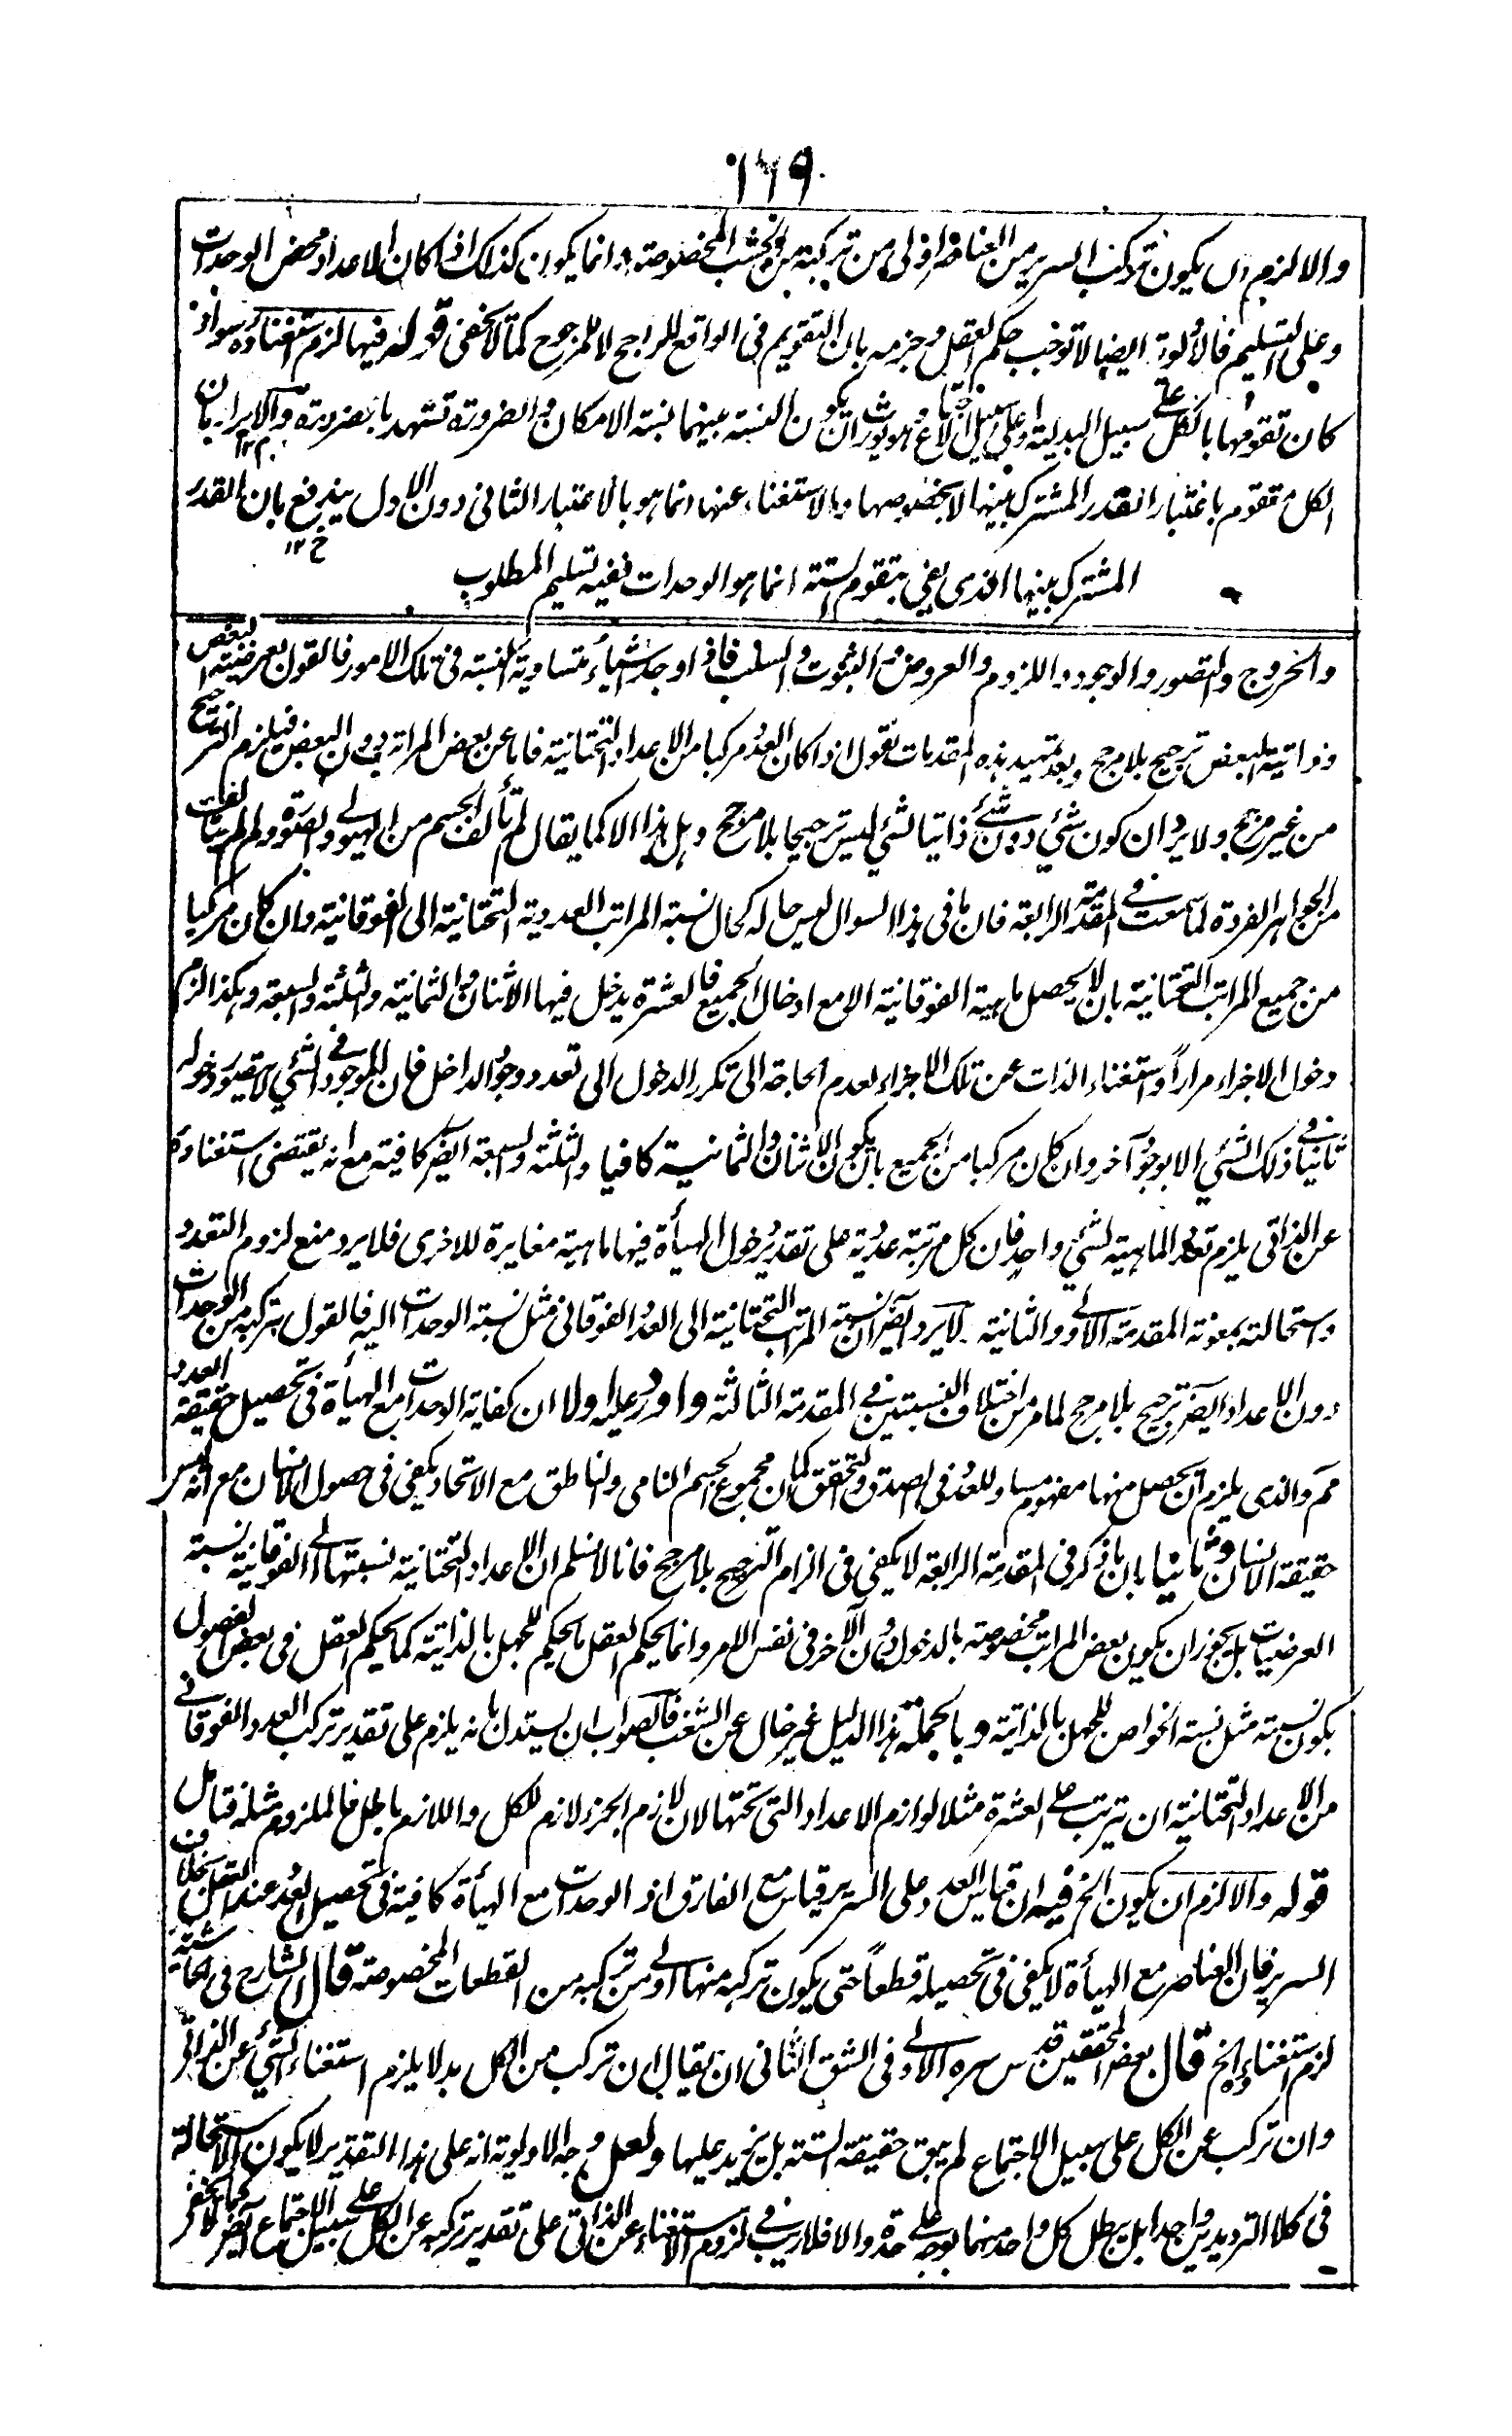 ١٦٩
والا لزم ان يكون تركب السرير من العناصر اولى من تركبه من الخشب المخصوصة وانما يكون كذلك اذا كان الاعداد محض الوحدات
وعلى التسليم فالاولوية ايضا لا توجب حكم العقل وجزمه بان التقويم فى الواقع للراجح لا للمرجوح كما لا يخفى قوله فيها لزم استغناؤه سواء
كان تقومها بالكل على سبيل البدلية او على سبيل الاجتماع وهو يورث ان يكون النسبة بينهما نسبة الامكان والضرورة تشهد بالضرورة والايراد بان
الكل متقوم باعتبار القدر المشترك بينها لا بخصوصها والاستغناء عنها انما هو بالاعتبار الثانى دون الاول يندفع بان القدر
المشترك بينها الذى يفى بتقوم الستة انما هو الوحدات ففيه تسليم المطلوب
والخروج والتصور والوجود واللزوم والعروض والثبوت والسلب فاذا وجد اشياء متساوية النسبة فى تلك الامور فالقول بعرضية البعض
وذاتية البعض ترجيح بلا مرجح وبعد تمهيد هذه المقدمات نقول اذا كان العدد مركبا من الاعداد التحتانية فاما عن بعض المراتب دون البعض فيلزم الترجيح
من غير مرجح ولا يرد ان كون شئ دون شئ ذاتيا لشئ ليس ترجيحا بلا مرجح وهل هذا الا كما يقال لم تألف الجسم من الهيولى والصورة ولم لم يتألف
من الجواهر الفردة لما سمعت فى المقدمة الرابعة فان ما فى هذا السوال ليس حاله كحال نسبة المراتب العددية التحتانية الى الفوقانية وان كان مركبا
من جميع المراتب التحتانية بان لا يحصل ماهية الفوقانية الا مع ادخال الجميع فالعشرة يدخل فيها الاثنان والثمانية والثلثة والسبعة وهكذا لزم
دخول الاجزاء مرارا واستغناء الذات عن تلك الاجزاء لعدم الحاجة الى تكرر الدخول الى تعدد وجود الداخل فان الموجود فى الشئ لا يتصور دخوله
ثانيا فى ذلك الشئ الا بوجود آخر وان كان مركبا من الجميع بان يكون الاثنان والثمانية كافيا والثلثة والسبعة ايضا كافية مع انه يقتضى استغناءه
عن الذاتى يلزم تعدد الماهية لشئ واحد فان كل مرتبة عددية على تقدير دخول الهيأة فيها ماهية مغايرة للاخرى فلا يرد منع لزوم التعدد
واستحالته بمعونة المقدمة الاولى والثانية لا يرد ايضا ان نسبة المراتب التحتانية الى العدد الفوقانى مثل نسبة الوحدات اليه فالقول بتركبه من الوحدات
دون الاعداد ايضا ترجيح بلا مرجح لما مر من اختلاف النسبتين فى المقدمة الثالثة واورد عليه اولا ان كفاية الوحدات مع الهيأة فى تحصيل حقيقة العدد
مم والذى يلزم ان يحصل منها مفهوم مساو للعدد فى الصدق والتحقق كما ان مجموع الجسم النامى والناطق مع الاتحاد يكفى فى حصول الانسان مع انه ليس
حقيقة الانسان وثانيا بان ما ذكر فى المقدمة الرابعة لا يكفى فى الزام الترجيح بلا مرجح فانا لا نسلم ان الاعداد التحتانية نسبتها الى الفوقانية نسبة
العرضيات بل يجوز ان يكون بعض المراتب مخصوصة بالدخول دون الآخر فى نفس الامر وانما يحكم العقل ما يحكم للجهل بالذاتية كما يحكم العقل فى بعض الفصول
بكون نسبته مثل نسبة الخواص للجهل بالذاتية وبالجملة هذا الدليل غير خال عن الشغب فالصواب ان يستدل بانه يلزم على تقدير تركب العدد الفوقانى
من الاعداد التحتانية ان يترتب على العشرة مثلا لوازم الاعداد التى تحتها لان لازم الجزء لازم للكل واللازم باطل فالملزوم مثله فتامل
قوله والا لزم ان يكون الخ فيه ان قياس العدد على السرير قياس مع الفارق اذ الوحدات مع الهيأة كافية فى تحصيل العدد عند العقل بخلاف
السرير فان العناصر مع الهيأة لا يكفى فى تحصيله قطعا حتى يكون تركبه منها اولى من تركبه من القطعات المخصوصة قال الشارح فى الحاشية
لزم استغناؤه الخ قال بعض المحققين قدس سره الاولى فى الشق الثانى ان يقال ان تركب من الكل بدلا يلزم استغناء الشئ عن الذاتى
وان تركب عن الكل على سبيل الاجتماع لم يبق حقيقة الستة بل يزيد عليها ولعل وجه الاولوية انه على هذا التقدير لا يكون الاستحالة
فى كلا الترديدين واحدا بل يبطل كل واحد منهما بوجه على حدة والا فلا ريب فى لزوم الاستغناء عن الذاتى على تقدير تركبه عن الكل على سبيل الاجتماع ايضا كما لا يخفى